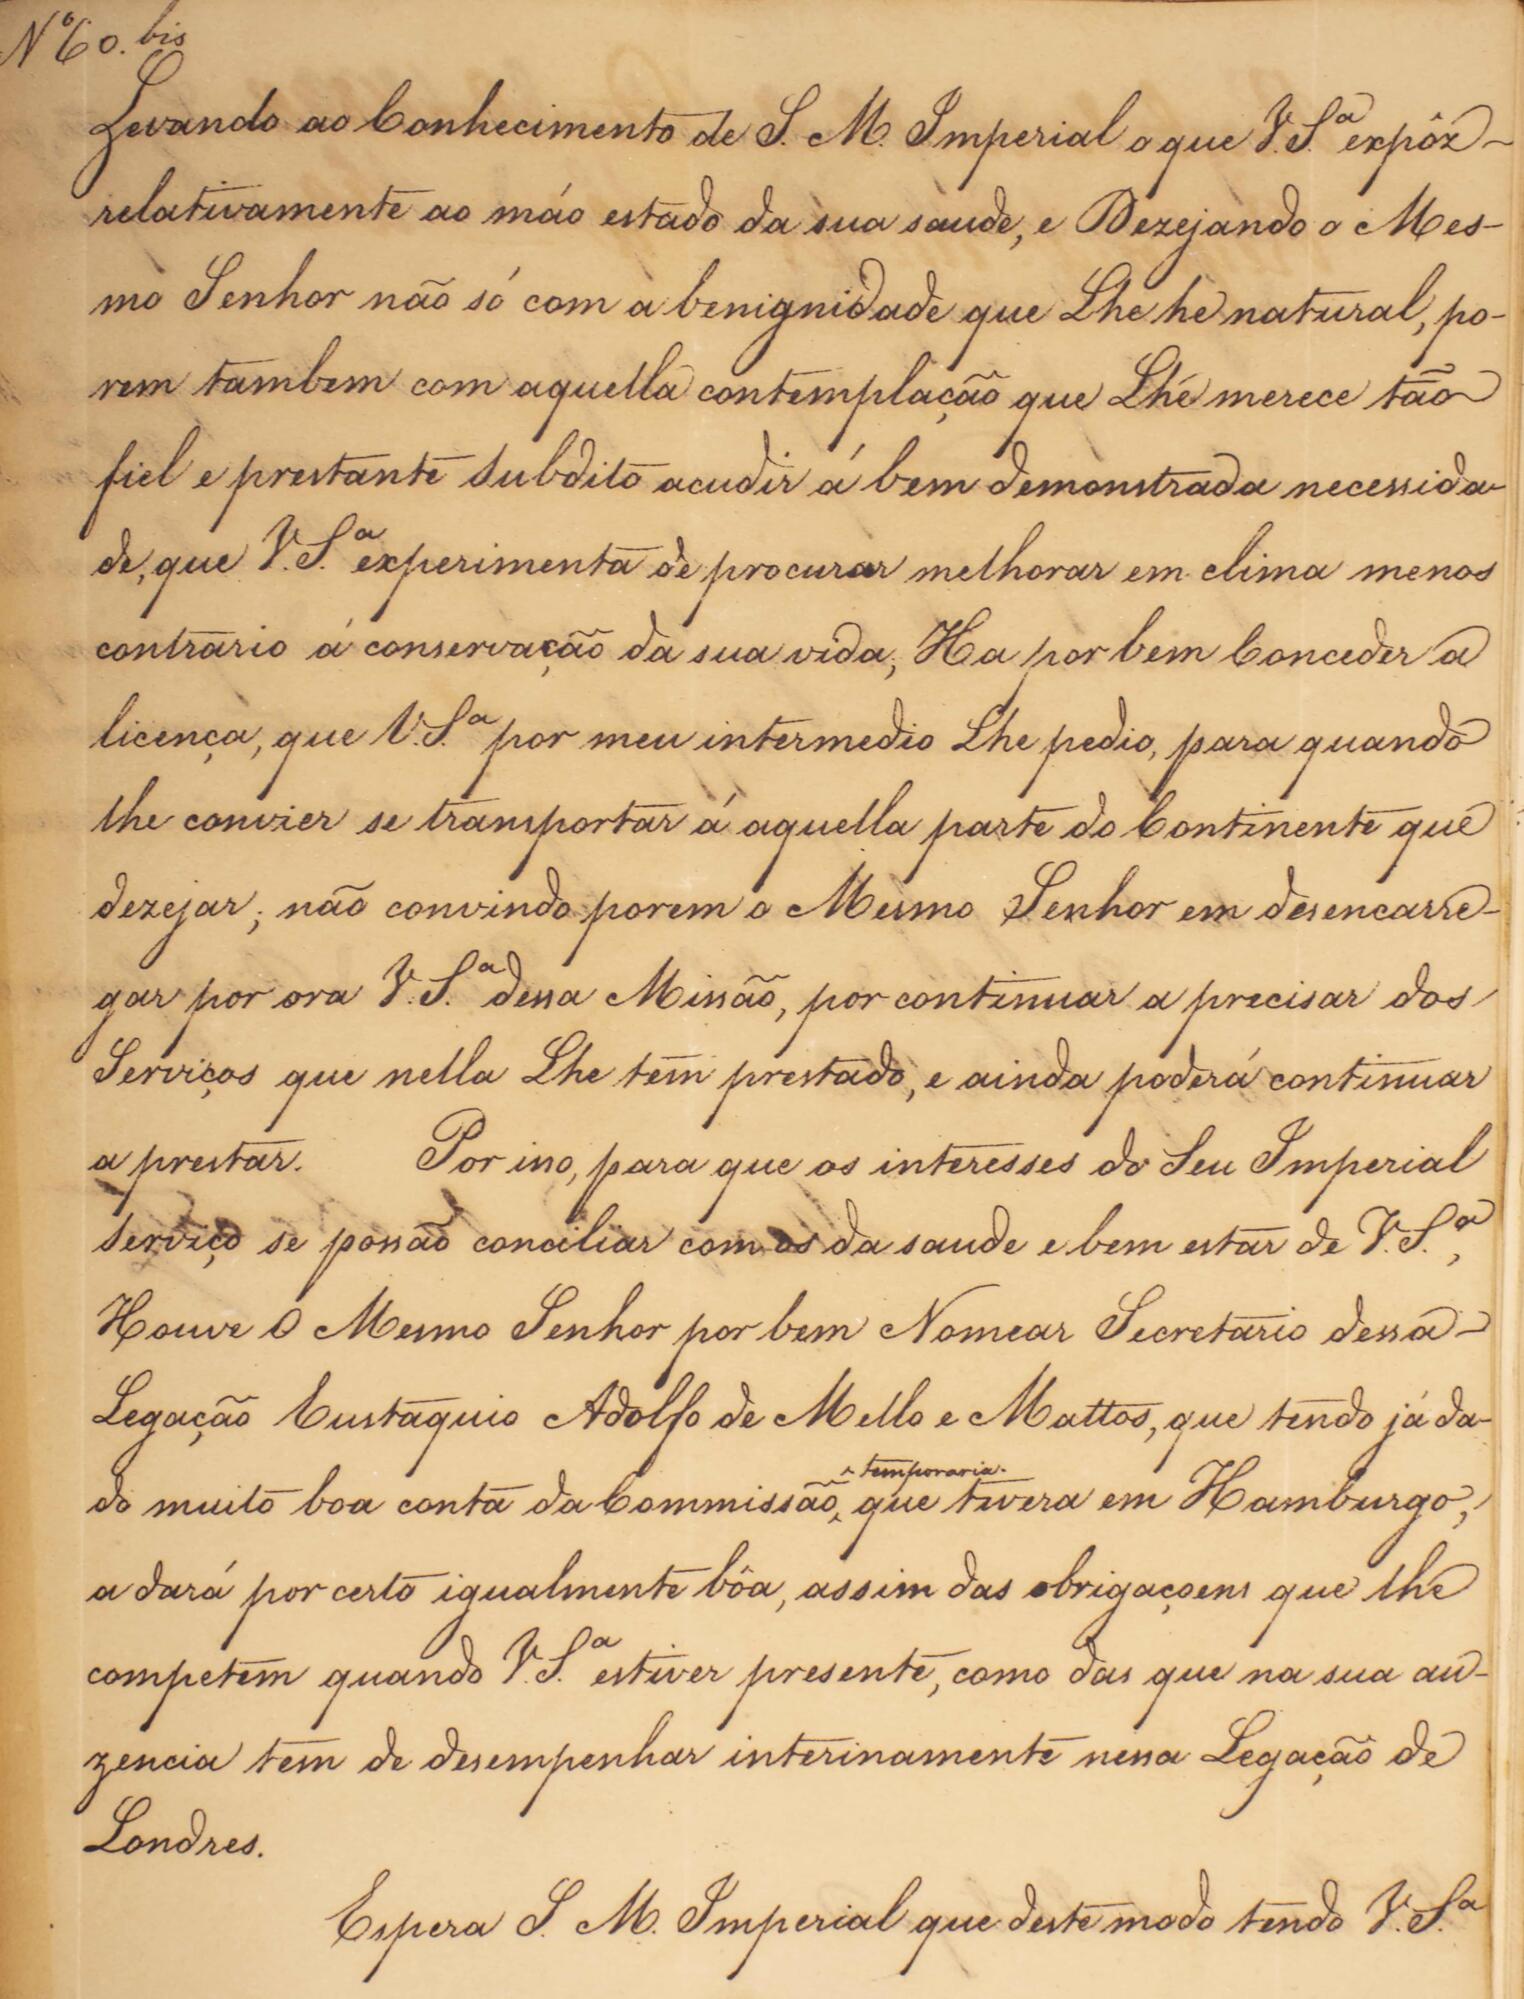 Nº 60. bis
Levando ao Conhecimento de S. M. Imperial o que V. S.ª expôz
relativamente ao máo estado da sua saude, e Dezejando o Mes-
mo Senhor não só com a benignidade que Lhe he natural, po-
rem tambem com aquella contemplação que Lhe merece tão
fiel e prestante Subdito acudir á bem demonstrada necessida-
de, que V. S.ª experimenta de procurar melhorar em clima menos
contrario á conservação da sua vida, Ha por bem Conceder a
licença, que V. S.ª por meu intermedio Lhe pedio, para quando
lhe convier se transportar á aquella parte do Continente que
dezejar; não convindo porem o Mesmo Senhor em desencarre-
gar por ora V. S.ª dessa Missão, por continuar a precisar dos
Serviços que nella Lhe tem prestado, e ainda poderá continuar
a prestar. Por isso, para que os interesses do Seu Imperial
Serviço se possão conciliar com os da saude e bem estar de V. S.ª,
Houve O Mesmo Senhor por bem Nomear Secretario dessa
Legação Eustaquio Adolfo de Mello e Mattos, que tendo já da-
do muito boa conta da Commissão temporaria que tivera em Hamburgo,
a dará por certo igualmente bôa, assim das obrigaçoens que lhe
competem quando V. S.ª estiver presente, como das que na sua au-
zencia tem de desempenhar interinamente nessa Legação de
Londres.
Espera S. M. Imperial que deste modo tendo V. S.ª